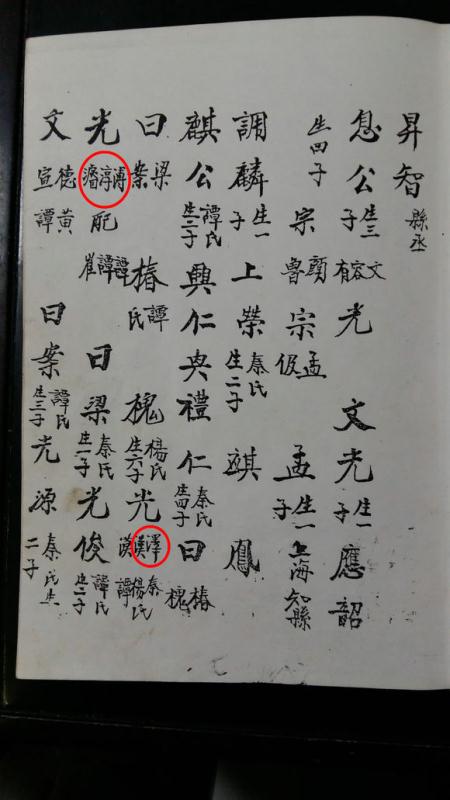 昇智 縣丞
息公 生三子 文容有光 文光 生一子 應韶
生四子 宗顏魯 宗孟伋 孟 生一子 上海知縣
調麟 生一子 上榮 秦氏生二子 祺 鳳
麒公 譚氏生二子 興仁 興禮 仁 秦氏生四子 曰椿槐
曰梁案 椿 譚氏 槐 楊氏生六子 光澤漢 秦楊氏譚
光 淳 配譚譚崔 曰梁 秦氏生一子 光俊 譚氏生二子
文德宣 黃譚 曰案 譚氏生三子 光源 秦氏生二子